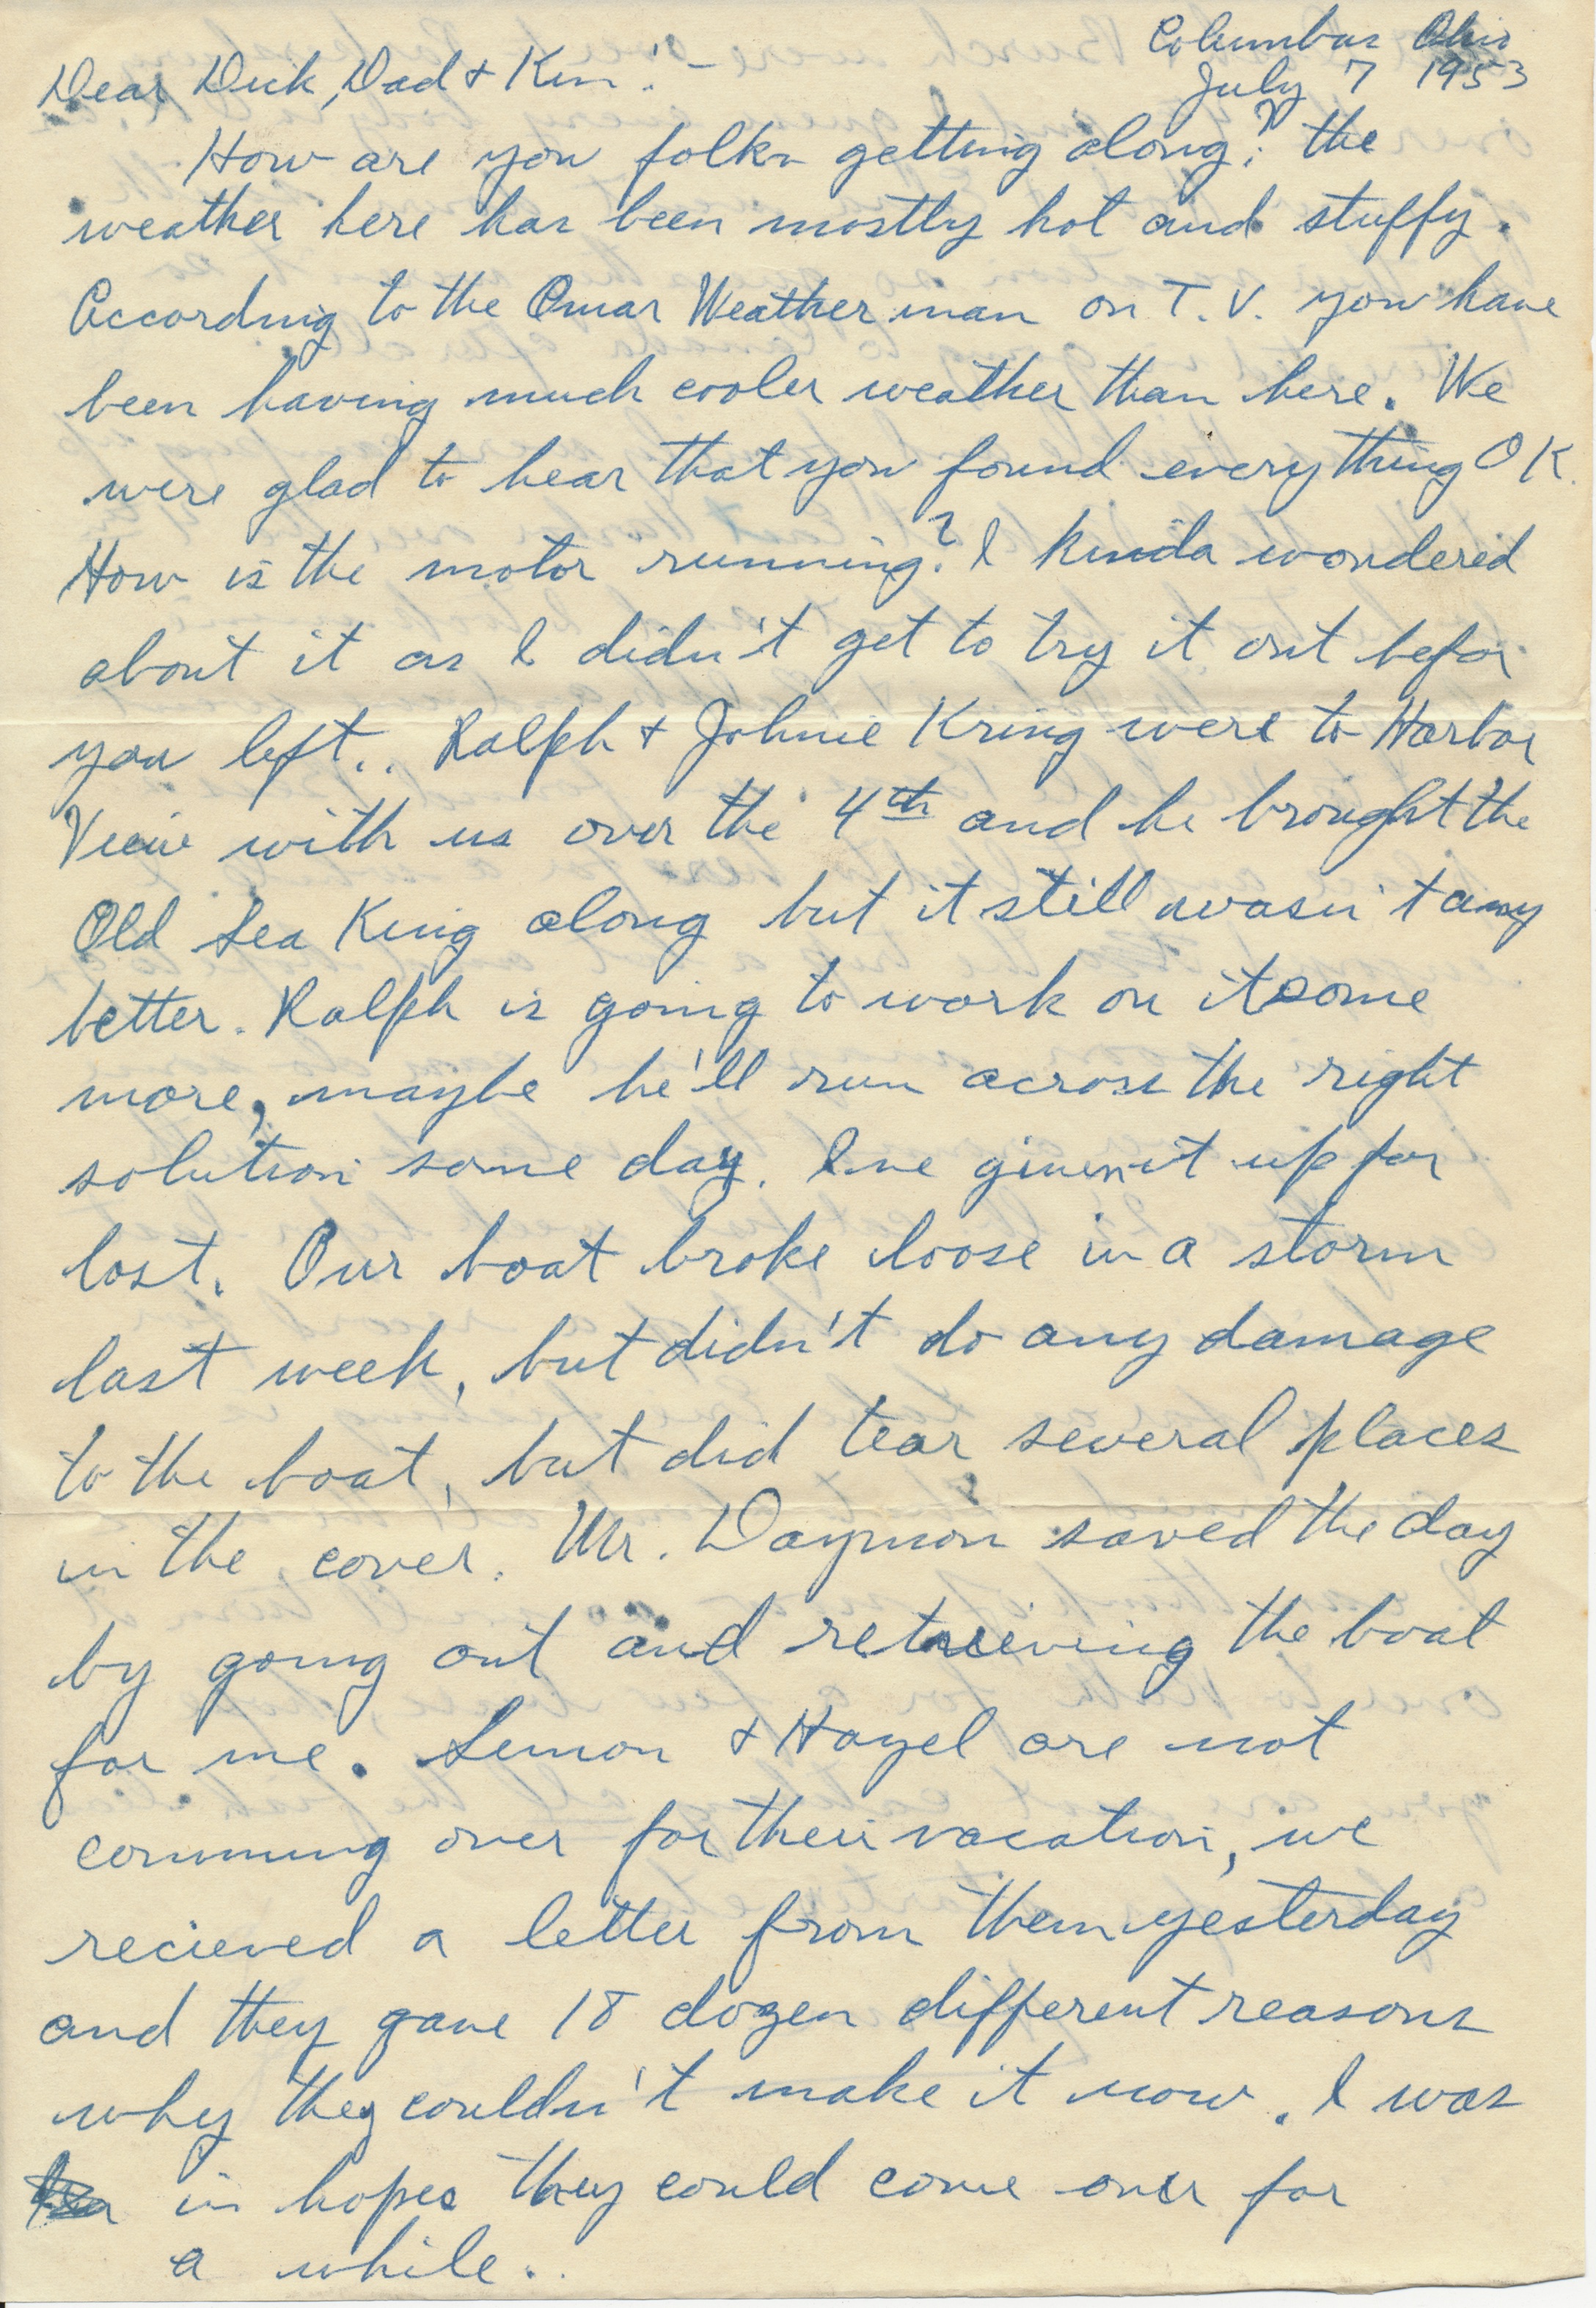 Columbus Ohio
July 7 1953
Dear Dick, Dad + Kim:-
How are you folks getting along? the
weather here has been mostly hot and stuffy.
According to the Omar Weather man on T.V. you have
been having much cooler weather than here. We
were glad to hear that you found everything OK.
How is the motor running? I kinda wondered
about it as I didn't get to try it out befor
you left.. Ralph + Johnie Kring were to Harbor
View with us over the 4th and he brought the
Old Sea King along but it still wasn't any
better. Ralph is going to work on it some
more, maybe he'll run across the right
solution some day. Ive given it up for
lost. Our boat broke loose in a storm
last week, but didn't do any damage
to the boat, but did tear several places
in the cover. Mr. Daymon saved the day
by going out and retrieving the boat
for me. Lemon + Hazel are not
comming over for their vacation, we
recieved a letter from them yesterday
and they gave 18 dozen different reasons
why they couldn't make it now. I was
in hopes they could come over for
a while..